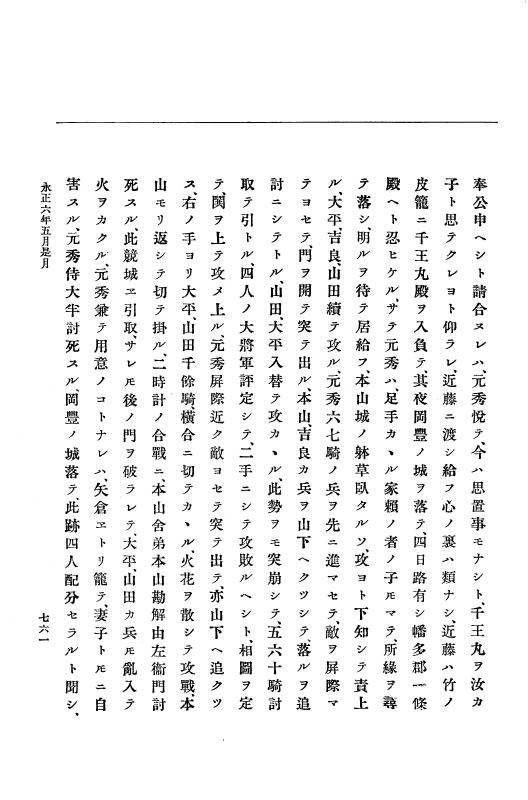 奉公申ヘシト請合ヌレハ、元秀悅テ、今ハ思置事モナシト、千王丸ヲ汝カ
子ト思テクレヨト仰ラレ、近藤ニ渡シ給フ心ノ裏ハ類ナシ、近藤ハ竹ノ
皮籠ニ千王丸殿ヲ入負テ、其夜岡豊ノ城ヲ落テ、四日路有シ幡多郡一條
殿ヘト忍ヒケル、サテ元秀ハ、足手カヽル家賴ノ者ノ子モマテ、所緣ヲ尋
テ落シ、明ルヲ待テ居給フ、本山城ノ躰草臥タルソ、攻ヨト下知シテ責上
ル、大平、吉良、山田續テ攻ル、元秀六七騎ノ兵ヲ先ニ進マセテ、敵ヲ屛際マ
テヨセテ、門ヲ開テ突テ出ル、本山、吉良カ兵ヲ山下ヘクツシテ、落ルヲ追
討ニシテトル、山田、大平入替テ攻カヽル、此勢ヲモ突崩シテ、五六十騎討
取テ引トル、四人ノ大將軍評定シテ、二手ニシテ攻敗ルヘシト、相圖ヲ定
テ、鬨ヲ上テ攻メ上ル、元秀屛際近ク敵ヨセテ突テ出テ、亦山下ヘ追クツ
ス、右ノ手ヨリ大平、山田千餘騎橫合ニ切テカヽル、火花ヲ散シテ攻戰、本
山モリ返シテ切テ掛ル、二時計ノ合戰ニ、本山舍弟本山勘解由左衞門討
死スル、此競城ヱ引取サレ𪜈後ノ門ヲ破ラレテ、大平、山田カ兵𪜈亂入テ
火ヲカクル、元秀兼テ用意ノコトナレハ、矢倉ヱトリ籠テ、妻子トモニ自
害スル、元秀侍大半討死スル、岡豊ノ城落テ、此跡四人配分セラルト聞シ、
永正六年五月是月
七六一